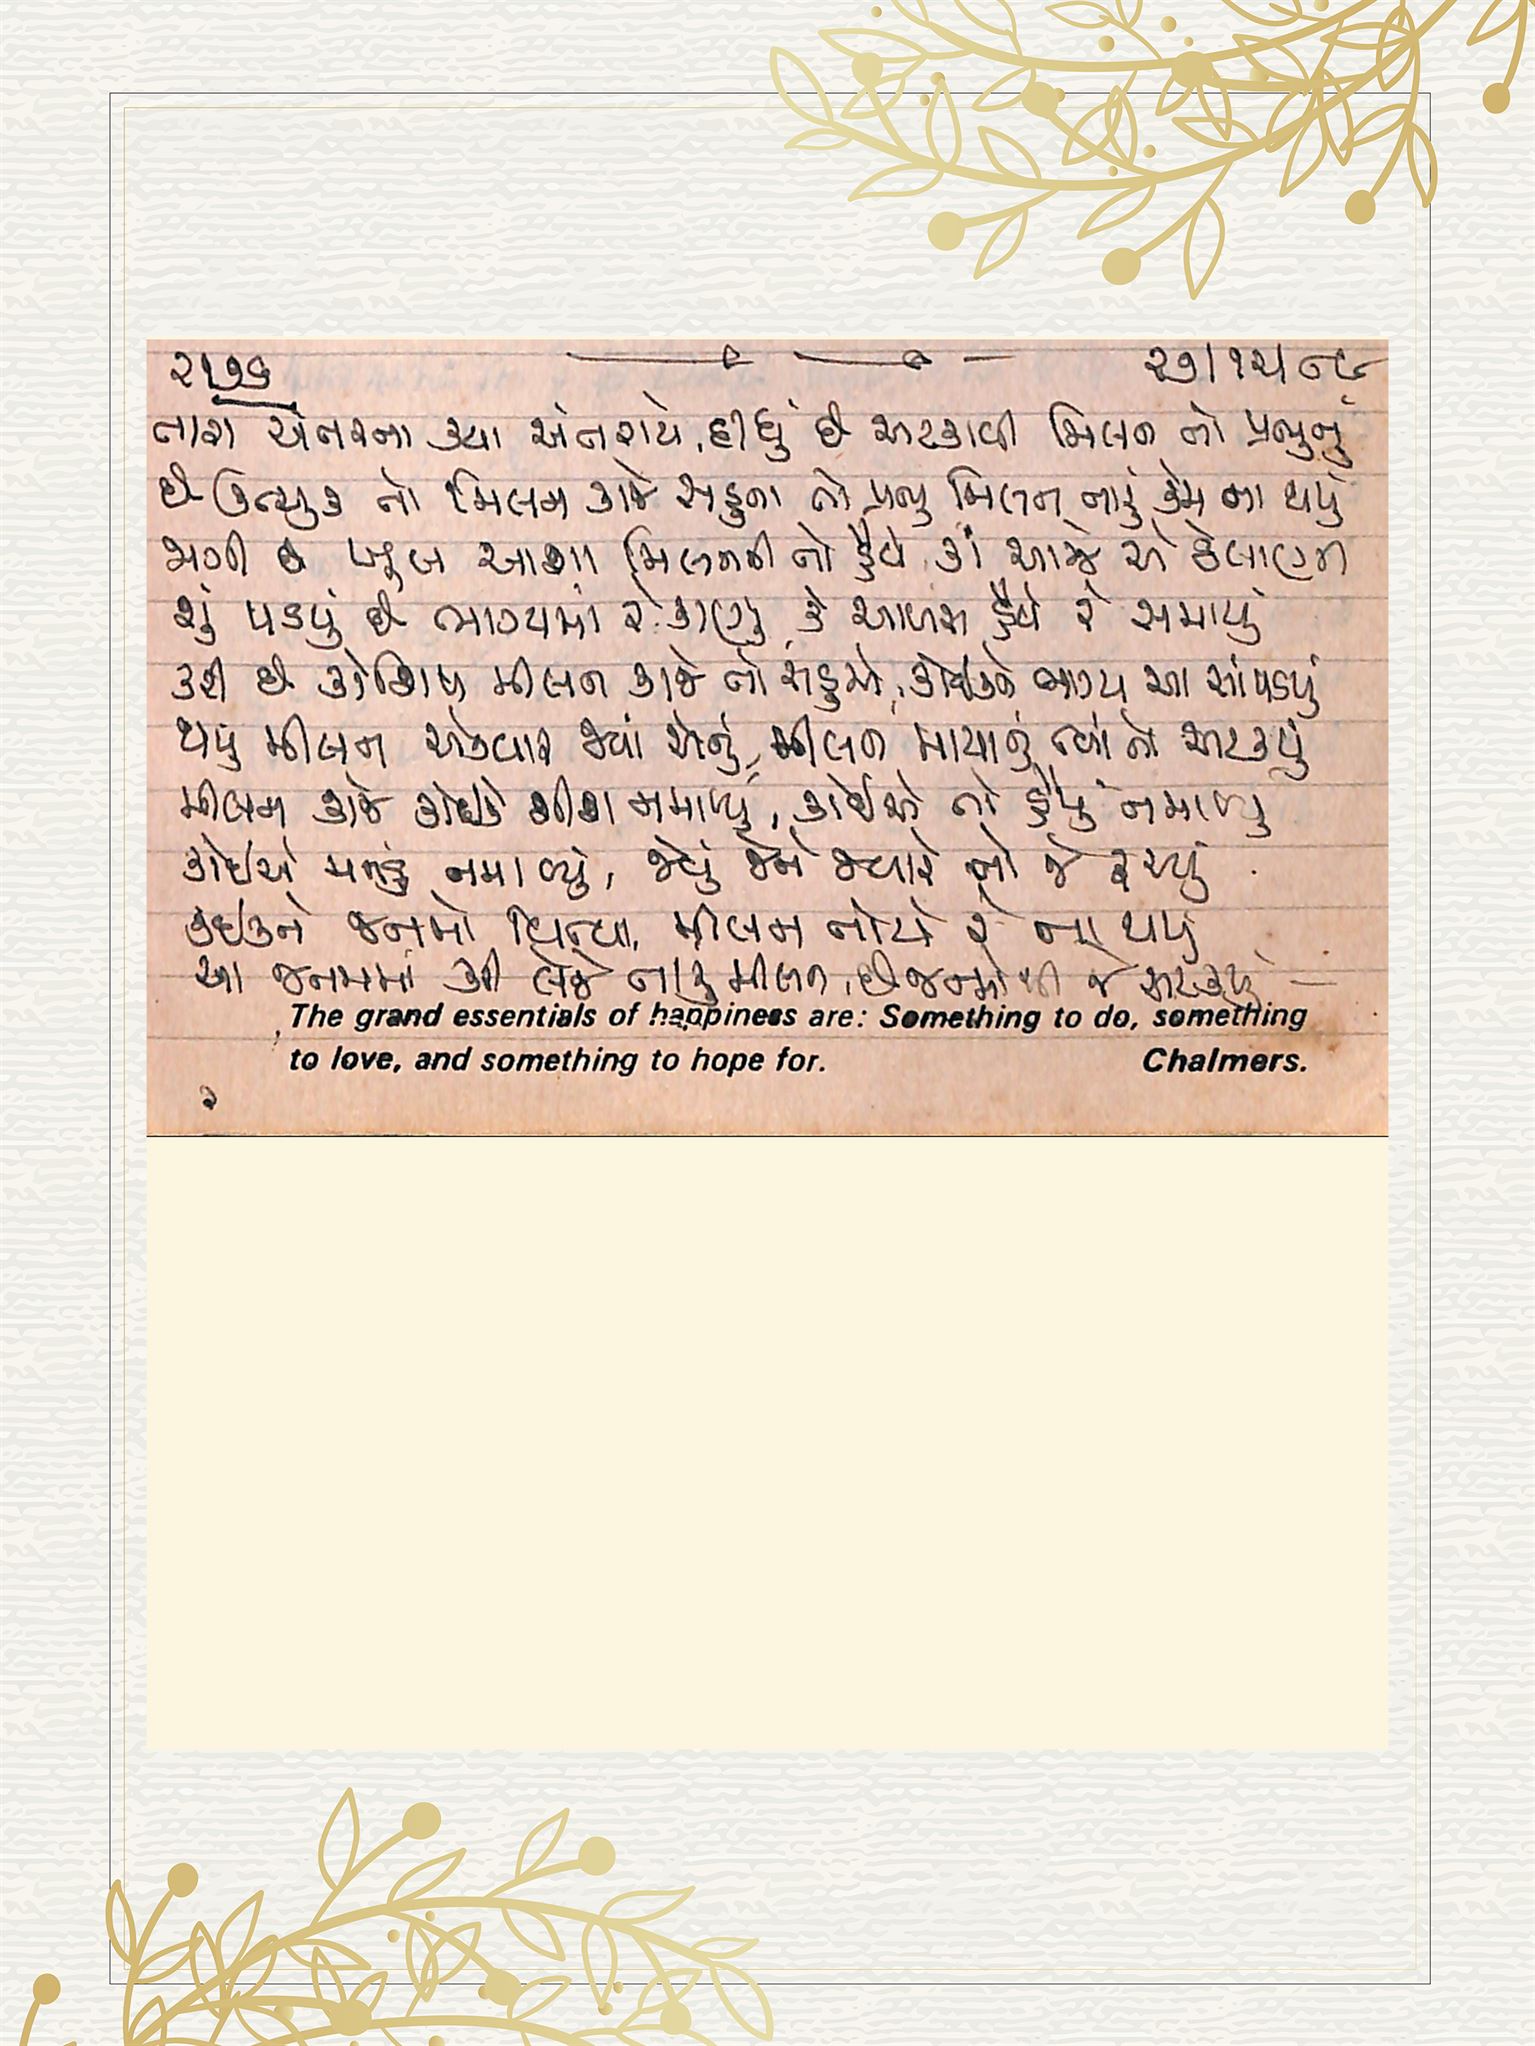 ૨૧૭૬ ૨૭/૧૨/૮૯
તારા અંતરના કયા અંતરાયે, દીધું છે અટકાવી મિલન તો પ્રભુનું
છે ઉત્સુક તો મિલન કાજે સહુના તો પ્રભુ મિલન તારું કેમ ના થયું
ભરી છે ખૂબ આશા મિલનની તો હૈયે, કાં આજે એ
શું પડયું છે ભાગ્યમાં રે કાણું કે આળસ હૈયે રે સમાયું
કરી છે કોશિષ મીલન કાજે તો સહુએ, કોઈકને ભાગ્ય આ સાંપડયું
થયું મીલન એકવાર જ્યાં એનું, મીલન માયાનું ત્યાં તો અટકયું
મીલન કાજે કોઈકે શીશ નમાવ્યું, કોઈએ તો હૈયું નમાવ્યું
કોઈએ મનડું નમાવ્યું, જેવું જેને જ્યારે તો જે રૂચ્યું
કંઈકને જનમો વિત્યા, મીલન તોયે રે ના થયું
આ જનમમાં કરી લેજે તારું મીલન, છે જન્મોથી જે અટકયું
The grand essentials of happiness are: Something to do, something
to love, and something to hope for. Chalmers.